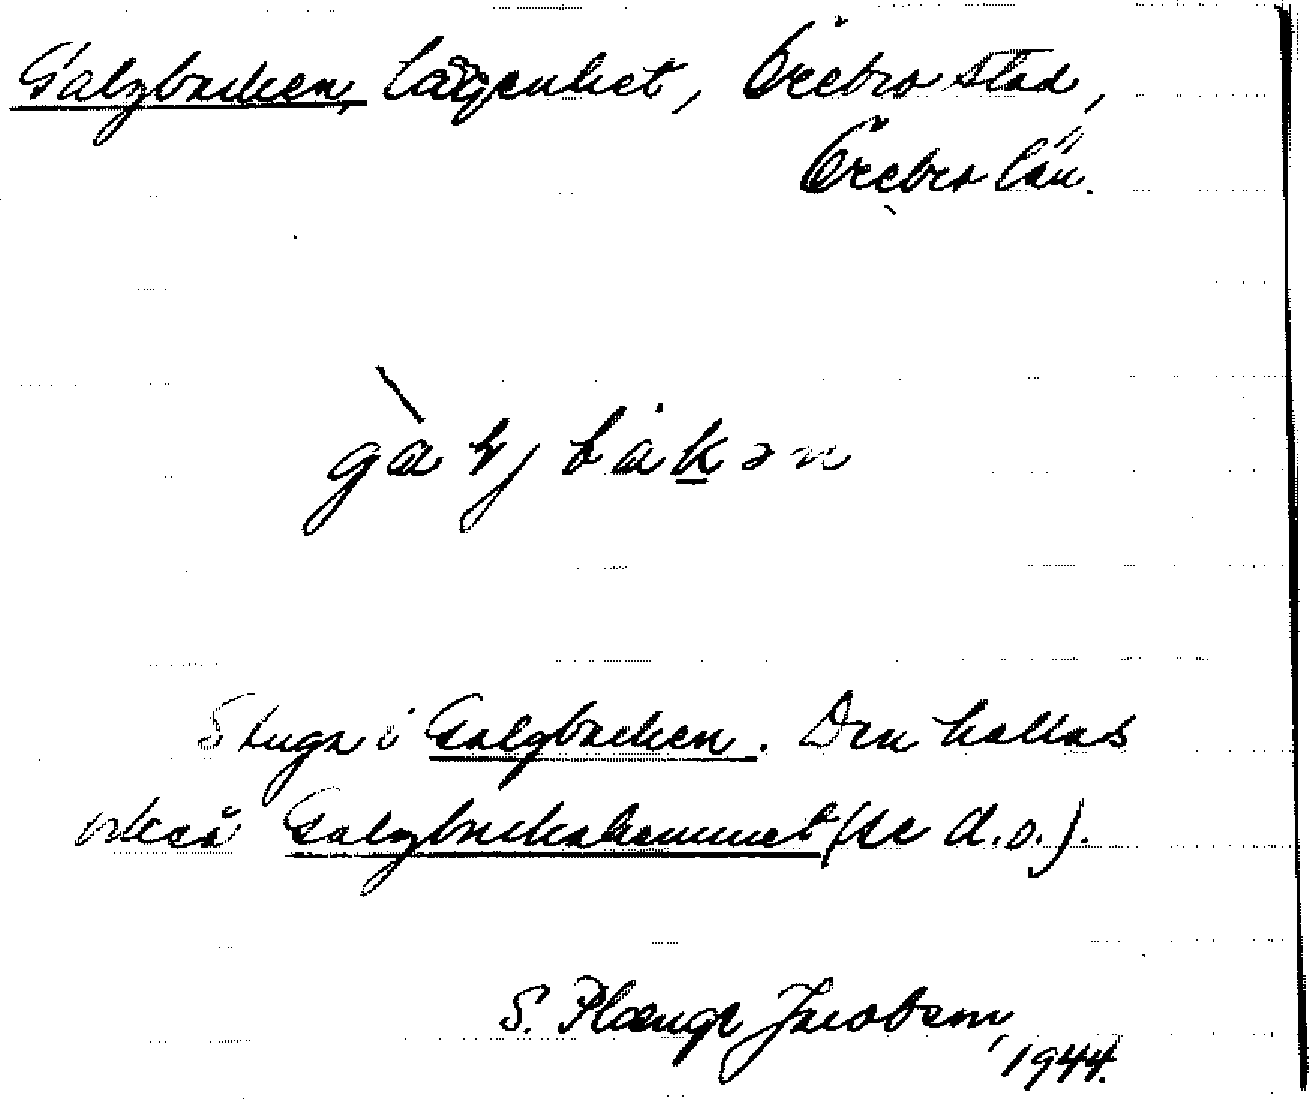 Galgbacken, lägenhet, Örebro stad,
Örebro län.
Stuga i Galgbacken. Den kallas
också Galgbackahemmet (se d.o.).
S. Plænge Jacobson,
1944.